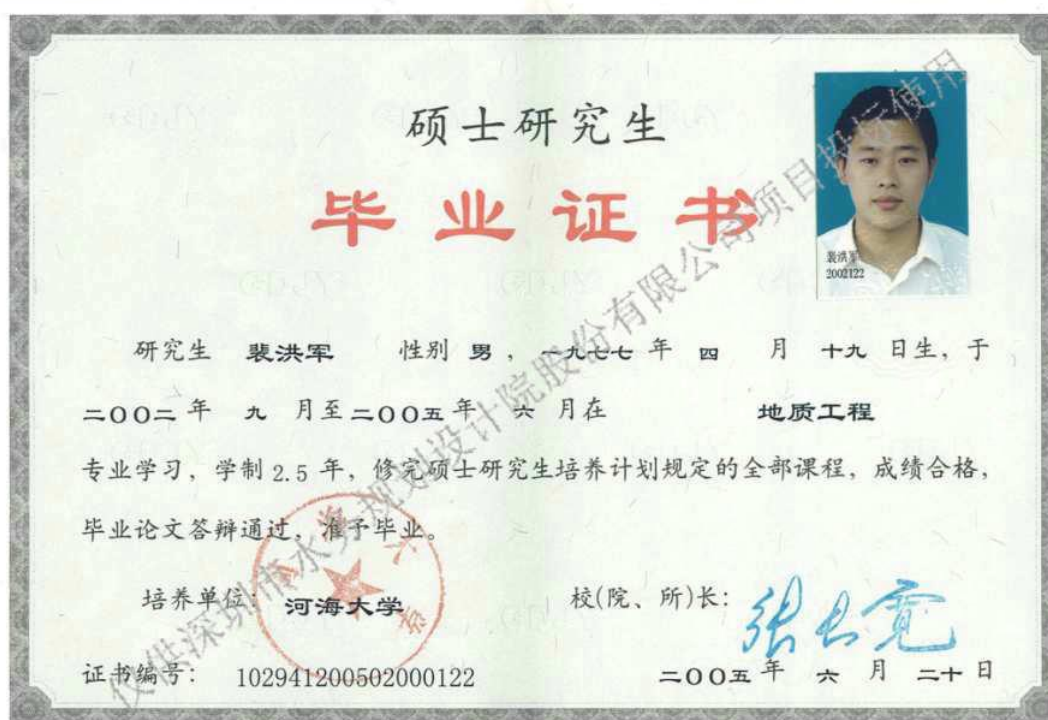 硕士研究生
毕业证书
裴洪军
2002122
研究生 裴洪军 性别 男 ，一九七七 年 四 月 十九 日生，于
二〇〇二 年 九 月至 二〇〇五 年 六 月在 地质工程
专业学习，学制 2.5 年，修完硕士研究生培养计划规定的全部课程，成绩合格，
毕业论文答辩通过，准予毕业。
培养单位： 河海大学
校(院、所)长： 张长宽
证书编号： 102941200502000122
二〇〇五 年 六 月 二十 日
河海大学
仅供深圳市水务规划设计院股份有限公司项目投标使用